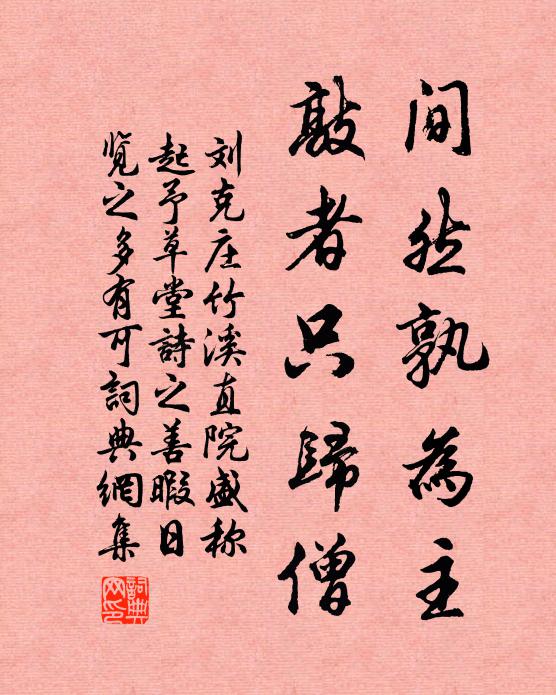 间然孰為主
敲者只歸僧
刘克庄竹溪直院盛称
起予草堂詩之善暇日
览之多有可詞典網集